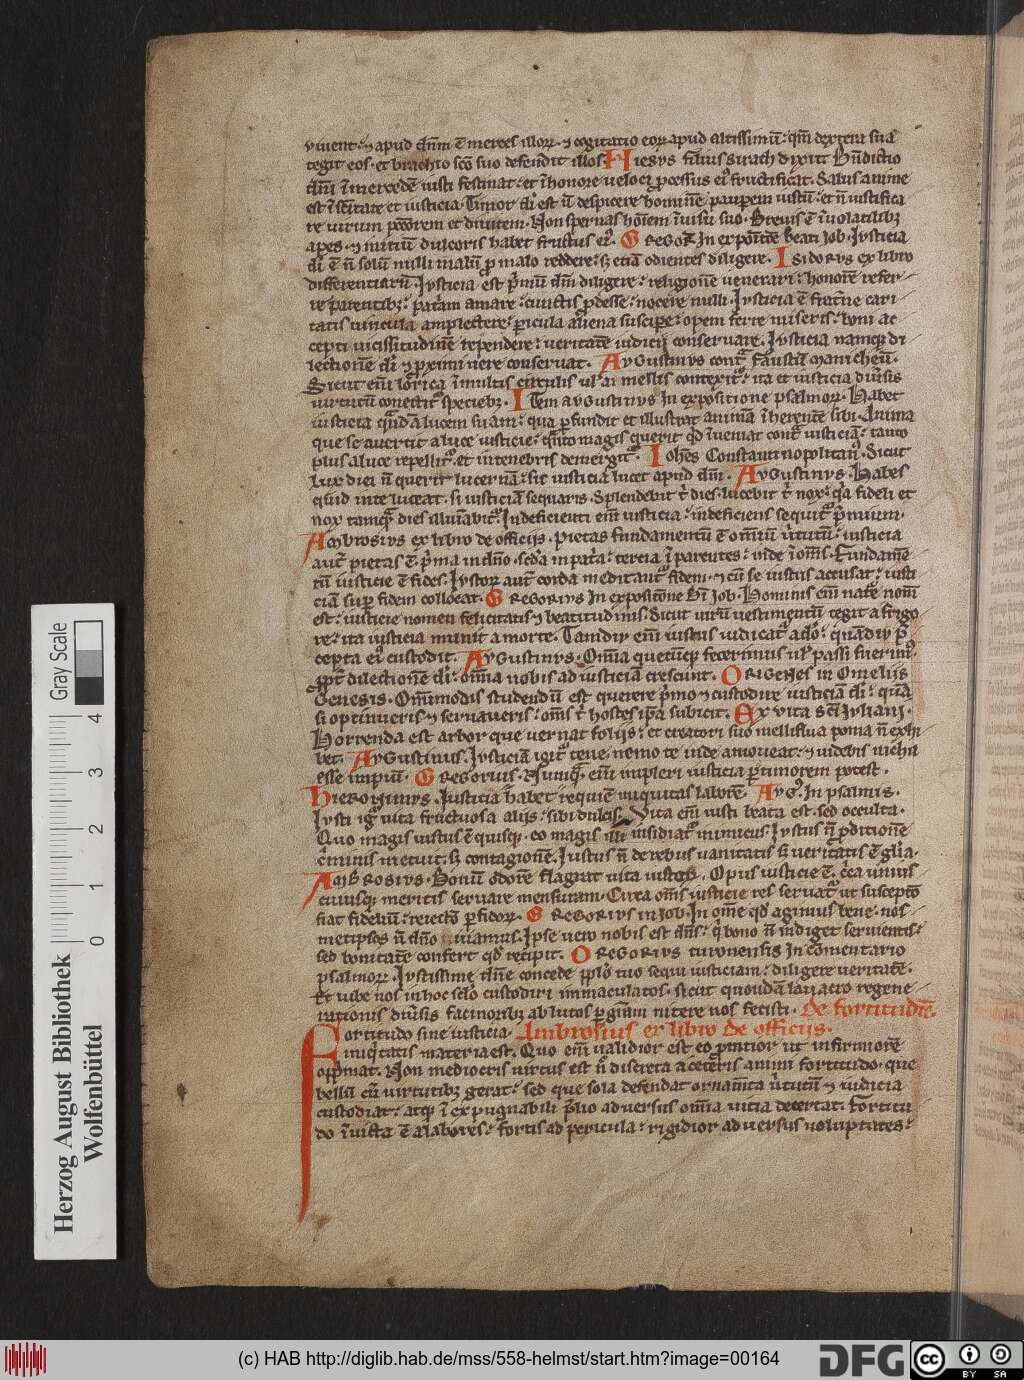 viuent: ⁊ apud dn̄m ē merces illoꝝ ⁊ cogitatio eoꝝ apud altissimū: qm̄ dextera sua
tegit eos. et brachio sc̄o suo defendit illos. Hiesvs filius Sirach dixit Bn̄dictio
dn̄i ī mercedē iusti festinat: et ī honore ueloci ꝓcessus ei fructificat. Salus anime
est ī sc̄itate et iusticia. Timor dī est ū despicere hominē paupem iustū: et ñ iustifica
re uirum pcc̄orem et diuitem. Non spernas hoīem ī uisu suo. Breuis ē ī uolatilibꝫ
apes. ⁊ initiū dulcoris habet fructus eiꝰ. Gregoꝝ In exposit̄oe beati Job. Justicia
dī ē ñ solū nulli malū ꝓ malo reddere: sꝫ etiā odientes diligere. Isidorvs ex libro
differentiarū. Justicia est p̄mū dm̄ diligere: religionē uenerari: honorē refer
re parentibꝫ: patr̄iam amare: cunctis ꝓdesse: nocere nulli. Justicia ē frat̄ne cari
tatis uincula amplectere: pericula aliena suscipe: opem ferre miseris: boni ac
cepti uicissitudinē rependere: ueritatē iudicij conseruare. Justicia namqꝫ di
lectionē dī ⁊ ꝓximi uere conseruat. Avgustinvs contᵃ faustū manicheū.
Sicut eīm lorica ī multis circulis ul̄ ai mellis contexit: ita et iusticia diu̓sis
uirtutū conectit speciebꝫ. Item avgustinvs In expositione psalmoꝝ. Habet
iusticia quādā lucem suam: qua ꝑfundit et illustrat animā ī herentē sibi. Anima
que se auertit a luce iusticie: quāto magis querit qd̄ īueniat contᵃ iusticiā: tanto
plus a luce repellit. et in tenebris demergit. Ioh̄es Constantinopolitanꝰ. Sicut
lux diei ñ querit lucernā: sic iusticia lucet apud dm̄. Avgustinvs. Habes
quid in te luceat. si iusticiā sequaris. Splendebit t̄ dies. lucebit t̄ nox: qᵃ fideli et
nox tamqᵃ dies illuīabit. Indeficienti eīm iusticia: indeficiens sequit p̄mium.
Ambrosivs ex libro de officijs. Pietas fundamentū ē omīu ūtutū: iusticia
aut̄ pietas ē. p̄ma in dn̄o. sed̄a in patr̄a: tercia ī parentes: inde ī oms̄. Fundamē
tū iusticie ē fides. Justoꝝ aut̄ corda meditant̄ fidem. ⁊ cū se iustus accusat: iusti
ciā suꝑ fidem collocat. Gregorivs In expositōne bt̄i Job. Hominis eīm nate nom̄
est: iusticie nomen felicitatis ⁊ beatitudinis. Sicut uirū uestimentū tegit a frigo
re: ita iusticia munit a morte. Tamdiv eīm iustus iudicat̄ a do̓: quādiv p̄
cepta ei custodit. Avgustinvs. Om̄ia quecūqꝫ fecerimus ul̄ passi fuerimꝰ.
ꝓpt̄ dilectionē dī: om̄ia nobis ad iusticiā crescunt. Origenes in Omelijs
Genesis. Om̄imodis studendū est querere p̄mo ⁊ custodire iusticiā dī: quā
si optinueris ⁊ seruaueris: oms̄ t̄ hostes ip̄a subiicit. Ex vita sc̄i Jvliani.
Horrenda est arbor que vernat folijs: et creatori suo melliflua poma ñ exhi
bet. Avgustinus. Justiciā igit̄ tene. nemo te inde amoueat: ⁊ uidebis nichil
esse impiū. Gregorius. Numqᵃ. eīm impleri iusticia ꝑ timorem potest.
Hieronimvs. Justicia habet requiē iniquitas laborē. Avgꝰ. In psalmis.
Justi igr̄ uita fructuosa alijs: sibi dulcis. Vita eīm iusti beata est. sed occulta.
Quo magis iustus ē quisqꝫ. eo magis illi insidiat̄ inimicus. Justus ñ ꝓditionē
c̄minis metuit. sꝫ contagionē. Justus ñ de rebus uanitatis sꝫ ueritatis ē gl̄ia.
Ambrosivs. Bonū odorē flagrat uita iustoꝝ. Opus iusticie ē. c̄ca unius
cuiusqꝫ meritis seruare mensuram. Circa om̄is iusticie res seruat̄ ut susceptō
fiat fideliū: reiectō ꝑfidoꝝ. Gregorivs in Job. In om̄e qd̄ agimus bene. nos
metipsos ñ dn̄o iuuamus. Ipse uero nobis est dn̄s: q̄ bono ñ indiget seruientis:
sed bonitatē confert qd̄ recipit. Gregorivs turonensis In comentario
psalmoꝝ. Justissime dn̄e concede ppl̄o tuo sequi iusticiam: diligere ueritatē.
Et iube nos in hoc sclō custodiri inmaculatos. sicut quondā lauacro regene
rationis diu̓sis facinoribꝫ ablutos ꝑ gr̄am nitere nos fecisti. De fortitudīe.
Fortitudo sine iusticia. Ambrosius ex libro de officiis.
iniqͥtatis materia est. Quo eīm validior est eo ꝓmtior ut infirmiorē
oppͥmat. Non mediocris uirtus est ñ discreta a ceteris animi fortitudo. que
bellū cū uirtutibꝫ gerat: sed que sola defendat ornamēta ūtutū ⁊ iudicia
custodiat: atqꝫ ī expugnabili p̄lio aduersus om̄ia uitia decertat. Fortitu
do īuicta ē a labores: fortis ad pericula: rigidior aduersus uoluptates:
Gray Scale
4
3
2
1
0
Herzog August Bibliothek
Wolfenbüttel
(c) HAB http://diglib.hab.de/mss/558-helmst/start.htm?image=00164
DFG
cc
BY SA